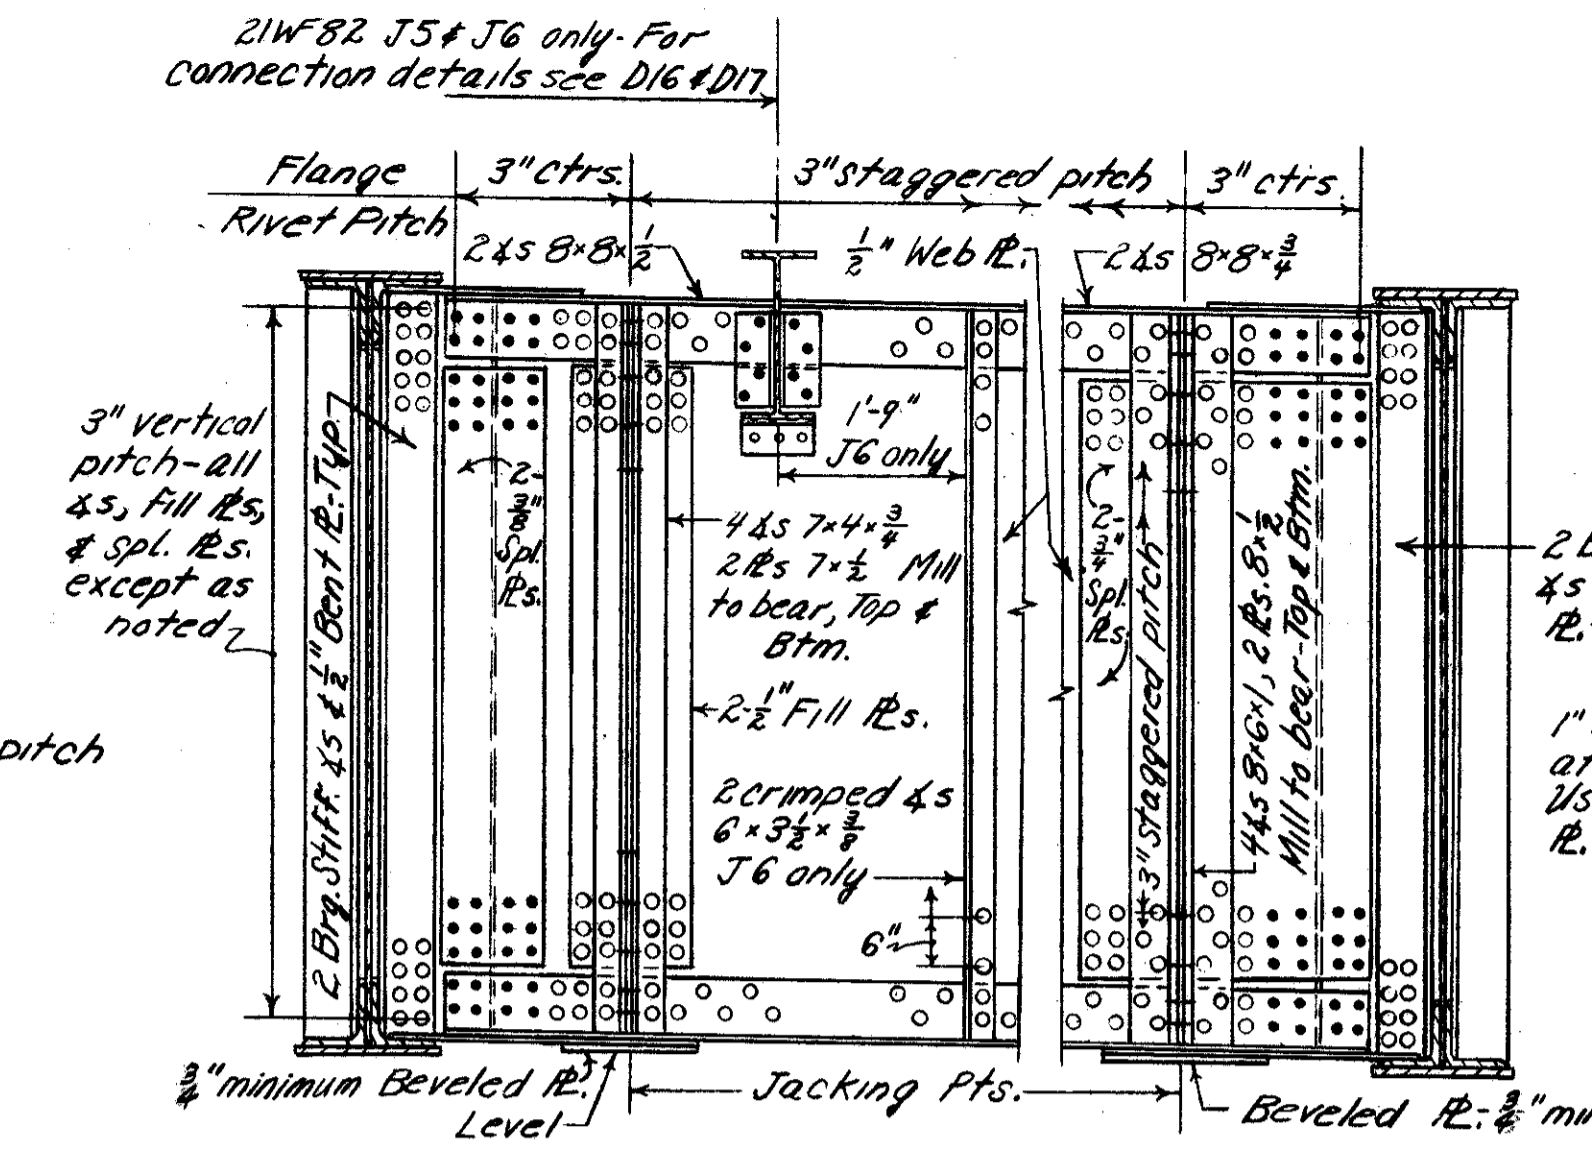 21WF82 J5 & J6 only - For
connection details see D16 & D17
Flange
Rivet Pitch
3" ctrs.
3" staggered pitch
3" ctrs.
2 ∠s 8×8×1/2
1/2" Web ℙ.
2 ∠s 8×8×3/4
3" vertical
pitch-all
∠s, Fill ℙs,
& spl. ℙs.
except as
noted
2 Brg. Stiff. ∠s & 1/2" Bent ℙ.-Typ.
2-
3/8"
Spl.
ℙs.
1'-9"
J6 only
4 ∠s 7×4×3/4
2 ℙs 7×1/2 Mill
to bear, Top &
Btm.
2-1/2" Fill ℙs.
2 crimped ∠s
6×3 1/2×3/8
J6 only
6"
2-
3/4"
Spl.
ℙs.
3" staggered pitch
4 ∠s 8×6×1, 2 ℙs. 8×1/2
Mill to bear-Top & Btm.
2
∠s
ℙ.
1"
at
Us
ℙ.
pitch
3/4" minimum Beveled ℙ.
Level
Jacking Pts.
Beveled ℙ.-3/4" min